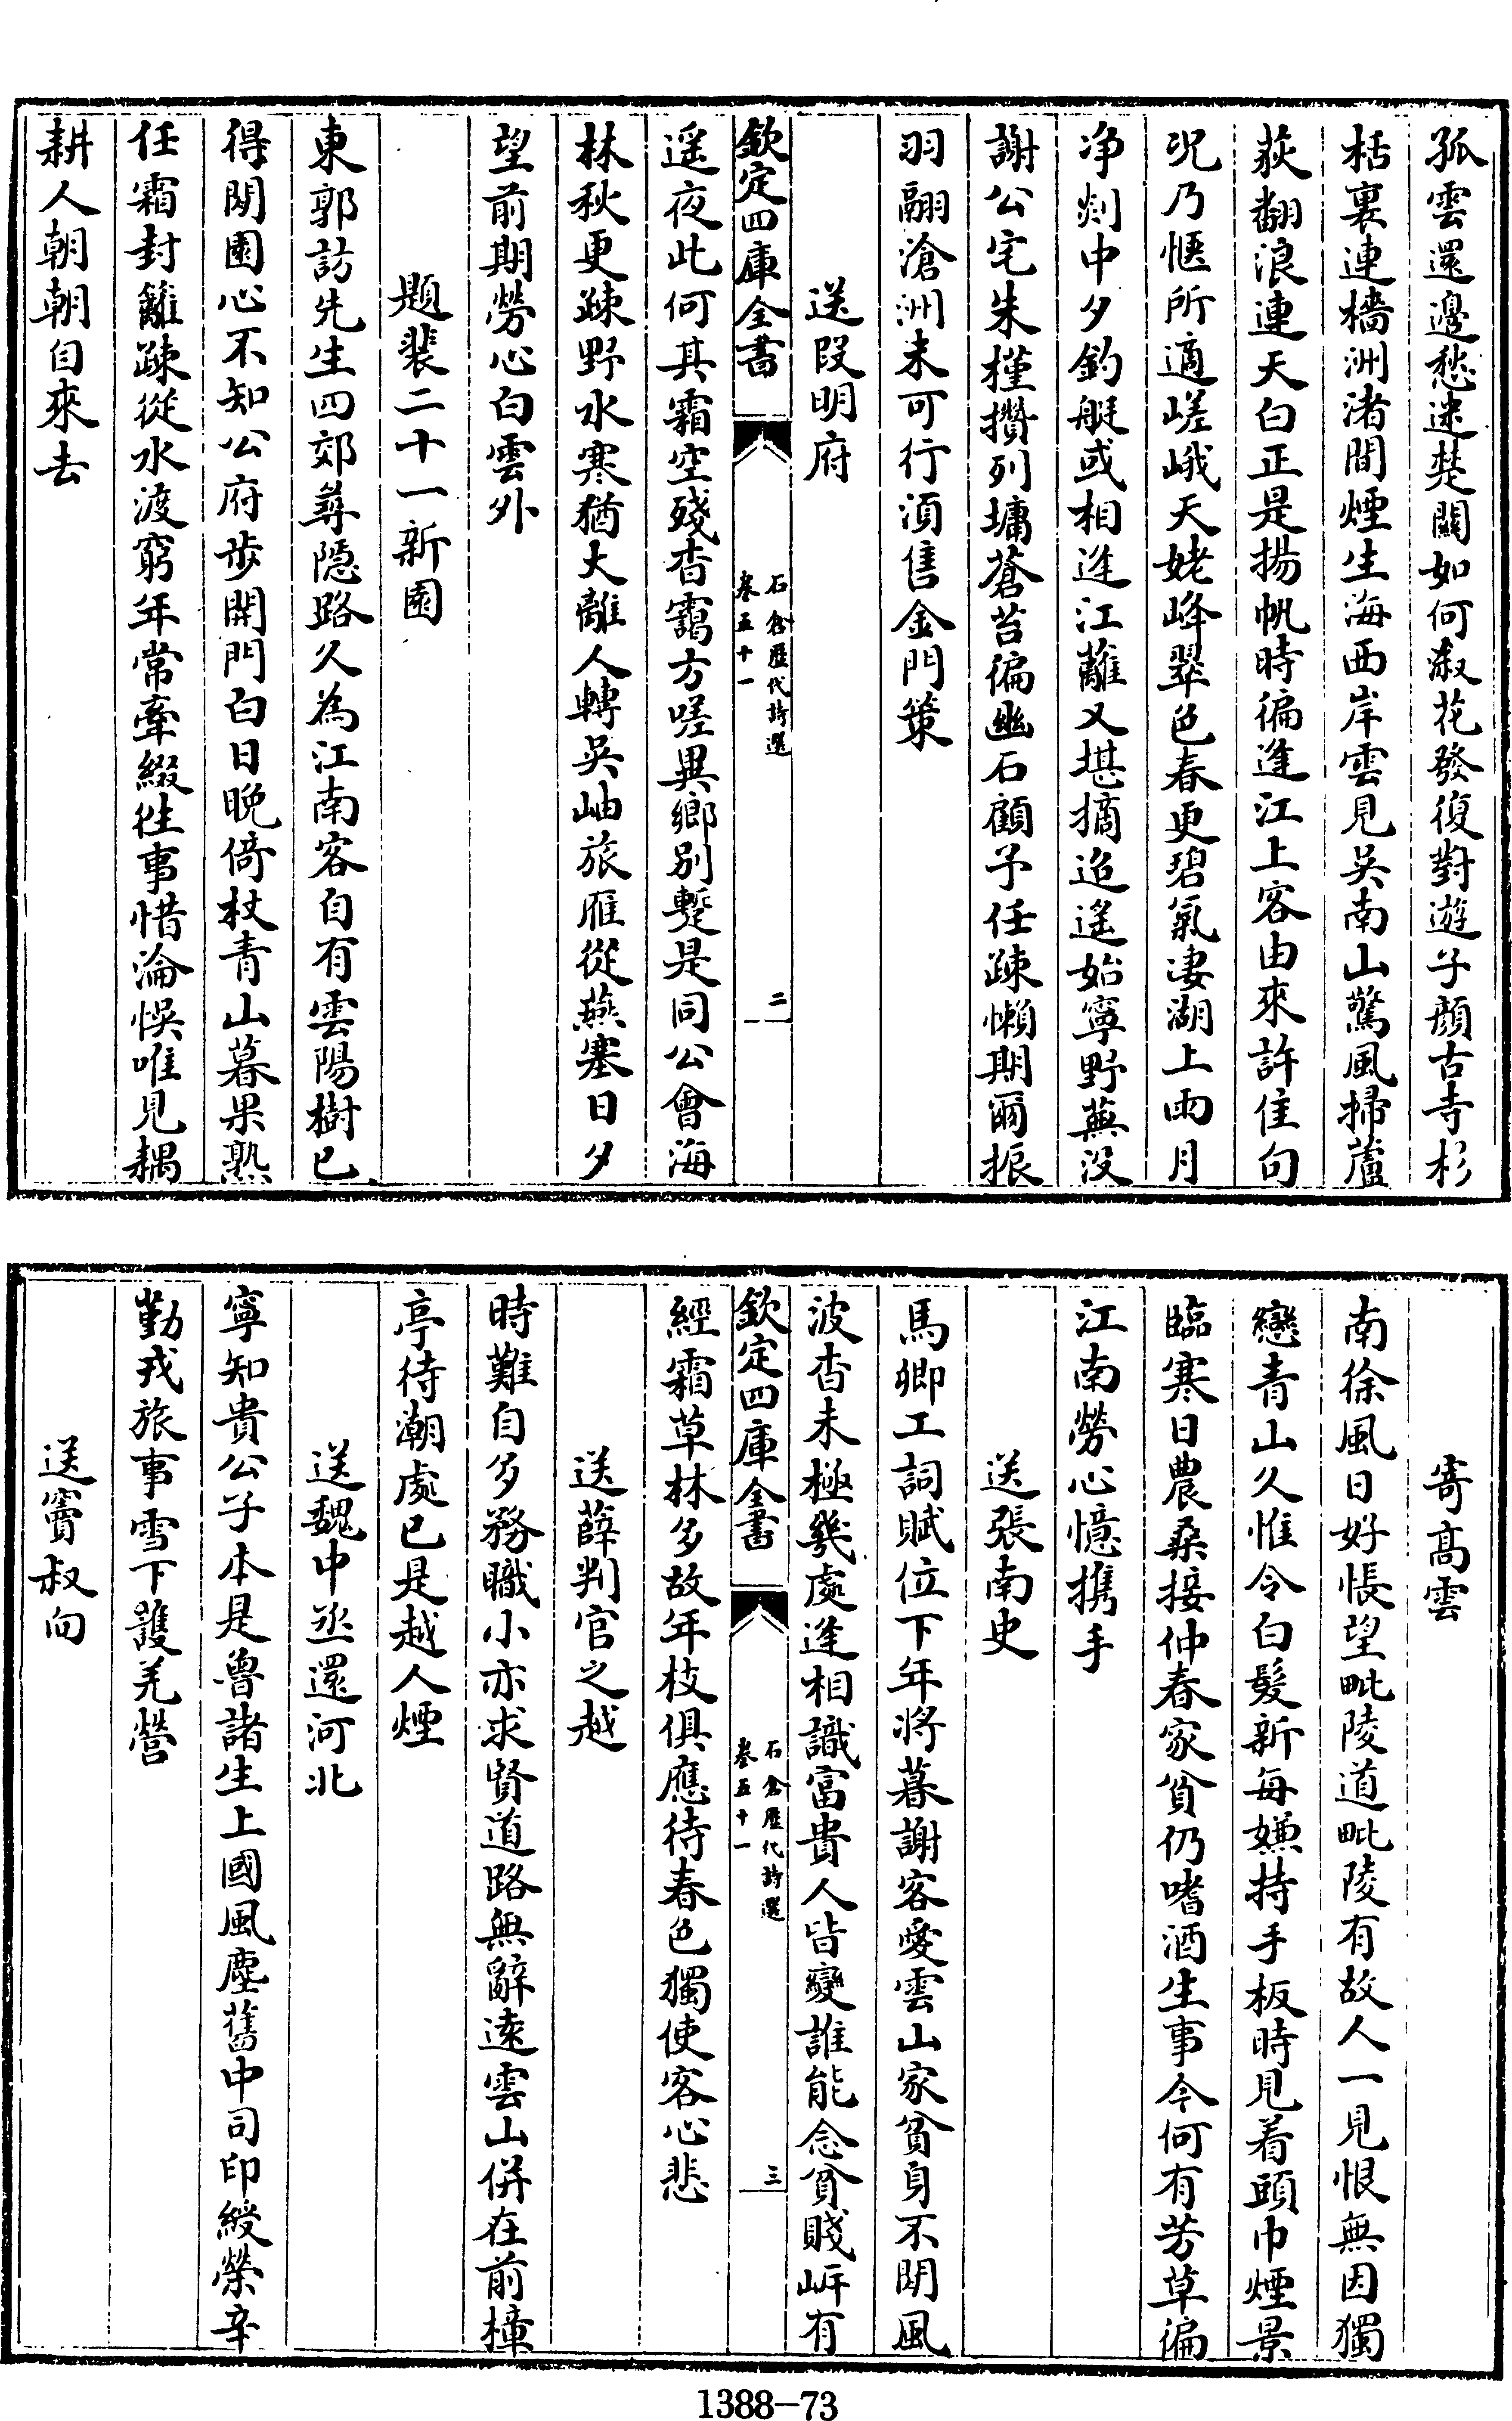 孤雲還邊愁迷楚關如何淑花發復對遊子顔古寺杉
栝裏連檣洲渚間煙生海西岸雲見吳南山驚風掃蘆
荻翻浪連天白正是揚帆時徧逢江上客由來許佳句
况乃愜所適嵯峨天姥峰翠色春更碧氣凄湖上雨月
净剡中夕釣艇或相逢江蘺又堪摘迢遙始寧野蕪没
謝公宅朱槿攢列墉蒼苔徧幽石顧予任疎懶期爾振
羽翮滄洲未可行須售金門策
送段明府
遥夜此何其霜空殘杳靄方嗟異鄉别暫是同公會海
林秋更疎野水寒猶大離人轉吳岫旅雁從燕塞日夕
望前期勞心白雲外
題裴二十一新園
東郭訪先生四郊尋隱路久為江南客自有雲陽樹已
得閒園心不知公府步開門白日晚倚杖青山暮果熟
任霜封籬疎從水渡窮年常牽綴往事惜淪悞唯見耦
耕人朝朝自來去
欽定四庫全書
石倉歷代詩選
卷五十一
二
寄高雲
南徐風日好悵望毗陵道毗陵有故人一見恨無因獨
戀青山久惟令白髮新每嫌持手板時見着頭巾煙景
臨寒日農桑接仲春家貧仍嗜酒生事今何有芳草徧
江南勞心憶携手
送張南史
馬卿工詞賦位下年將暮謝客愛雲山家貧身不閒風
波杳未極幾處逢相識富貴人皆變誰能念貧賤岍有
經霜草林多故年枝俱應待春色獨使客心悲
送薛判官之越
時難自多務職小亦求賢道路無辭遠雲山併在前樟
亭待潮處已是越人煙
送魏中丞還河北
寧知貴公子本是魯諸生上國風塵舊中司印綬榮辛
勤戎旅事雪下護羌營
送竇叔向
欽定四庫全書
石倉歷代詩選
卷五十一
三
1388-73